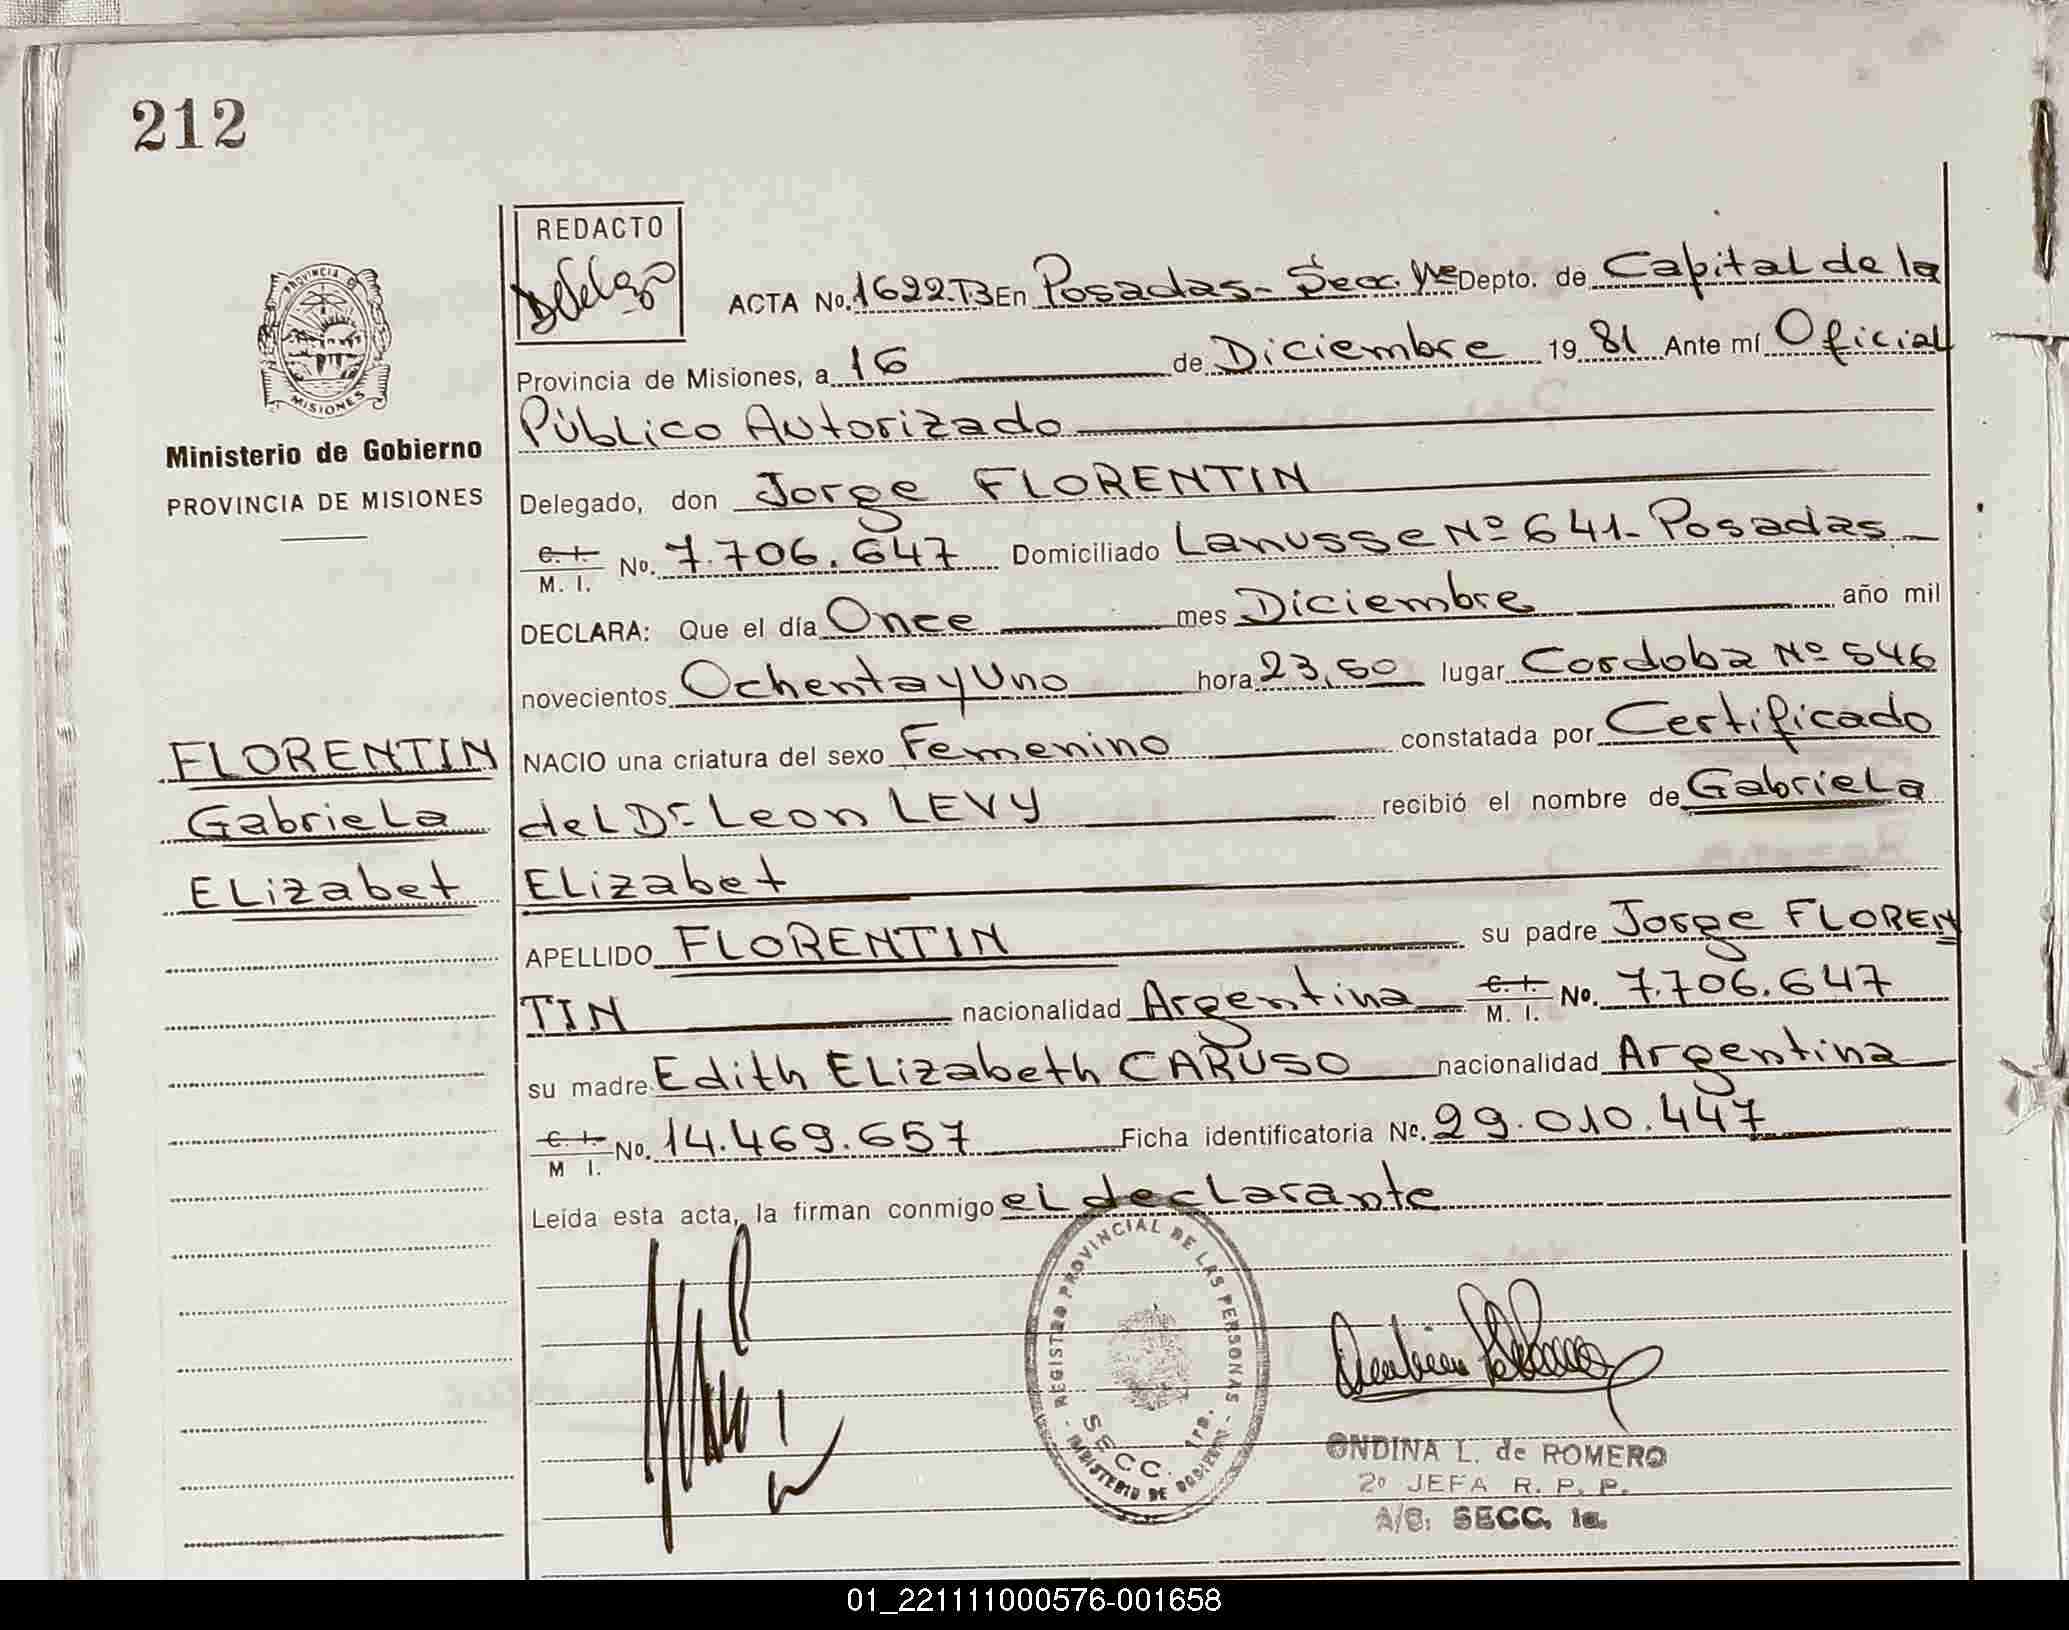 212
REDACTO
PROVINCIA DE
MISIONES
Ministerio de Gobierno
PROVINCIA DE MISIONES
FLORENTIN
Gabriela
Elizabet
ACTA No. 1622.T3 En Posadas- Secc. 1ra Depto. de Capital de la
Provincia de Misiones, a 16 de Diciembre 1981 Ante mí Oficial
Público Autorizado
Delegado, don Jorge FLORENTIN
C. I. M. I. No. 7.706.647 Domiciliado Lanusse Nº 641- Posadas
DECLARA: Que el día Once mes Diciembre año mil
novecientos Ochenta y Uno hora 23,50 lugar Cordoba Nº 546
NACIO una criatura del sexo Femenino constatada por Certificado
del Dr Leon LEVY recibió el nombre de Gabriela
Elizabet
APELLIDO FLORENTIN su padre Jorge FLOREN
TIN nacionalidad Argentina C. I. M. I. No. 7.706.647
su madre Edith Elizabeth CARUSO nacionalidad Argentina
C. I. M I. No. 14.469.657 Ficha identificatoria No. 29.010.447
Leída esta acta, la firman conmigo el declarante
REGISTRO PROVINCIAL DE LAS PERSONAS
SECC. 1ra.
MINISTERIO DE GOBIERNO
ONDINA L. de ROMERO
2º JEFA R. P. P.
A/C: SECC. 1a.
01_221111000576-001658